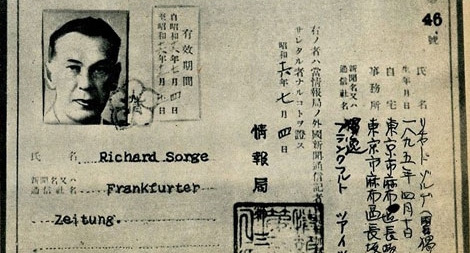 46
號
氏名 リヒヤード ゾルゲ
生年月日 一八九五年
自宅 東京市麻布區長坂
事務所 東京市麻布區長坂
新聞名又ハ
通信社名
フランクフルト ツアイツ
右ノ者ハ當情報局ノ外國新聞通信記者
サレタル者ナルコトヲ證ス
昭和 年七月四日
情報局 第三
有效期間
自昭和 年七月四日
至昭和
氏名 Richard Sorge
新聞名又ハ
通信社名 Frankfurter
Zeitung.